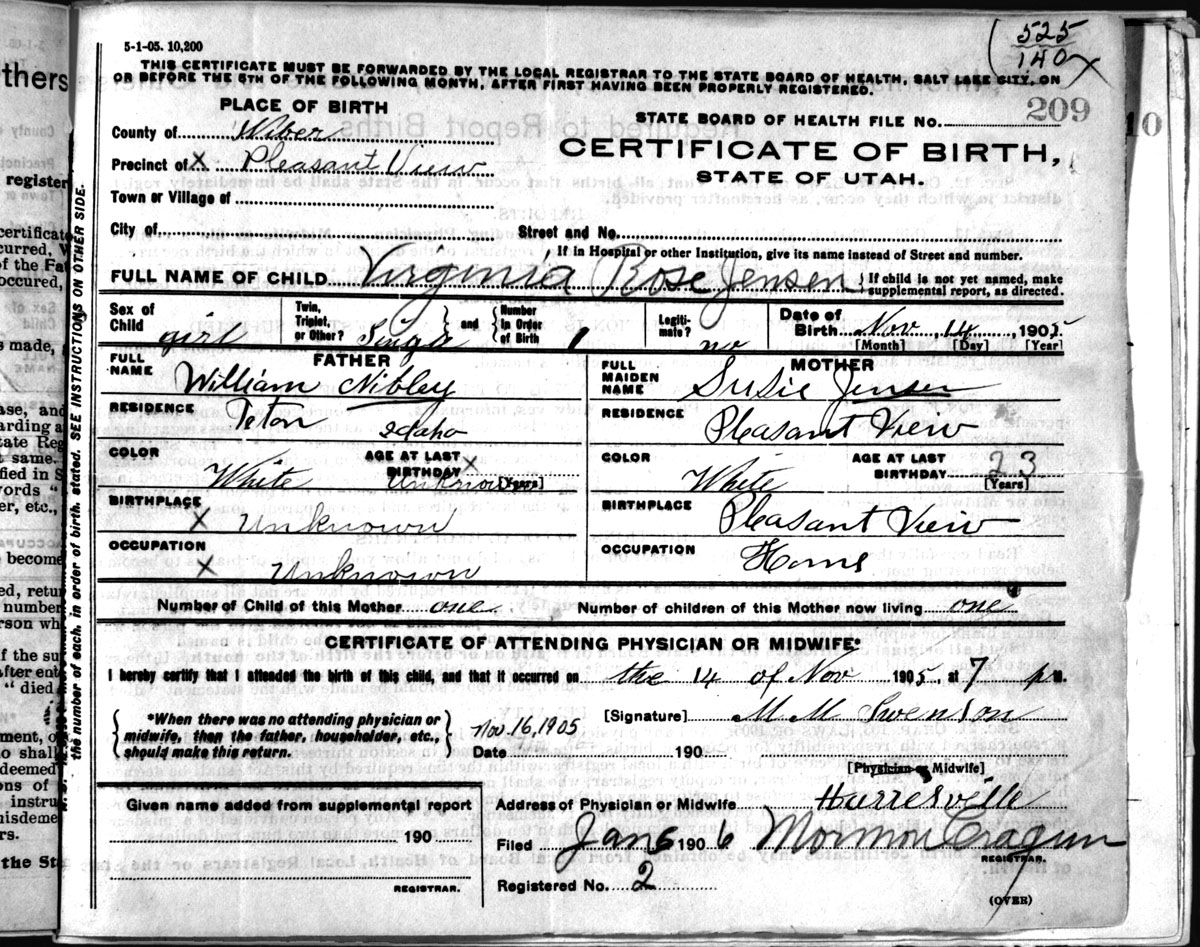 525
140
5-1-05. 10,200
THIS CERTIFICATE MUST BE FORWARDED BY THE LOCAL REGISTRAR TO THE STATE BOARD OF HEALTH, SALT LAKE CITY, ON
OR BEFORE THE 5TH OF THE FOLLOWING MONTH, AFTER FIRST HAVING BEEN PROPERLY REGISTERED.
PLACE OF BIRTH
STATE BOARD OF HEALTH FILE NO. 209
10
County of Wiber
CERTIFICATE OF BIRTH,
Precinct of X Pleasant View
STATE OF UTAH.
Town or Village of
City of Street and No.
If in Hospital or other Institution, give its name instead of Street and number.
FULL NAME OF CHILD Virginia Rose Jensen } If child is not yet named, make supplemental report, as directed.
Sex of Child girl Twin, Triplet, or Other? Single and Number in Order of Birth 1 Legiti-mate? no Date of Birth Nov 14, 1905
[Month] [Day] [Year]
FATHER MOTHER
FULL NAME William Nibley FULL MAIDEN NAME Susie Jensen
RESIDENCE Teton Idaho RESIDENCE Pleasant View
COLOR White AGE AT LAST BIRTHDAY X Unknown [Years] COLOR White AGE AT LAST BIRTHDAY 23 [Years]
BIRTHPLACE X Unknown BIRTHPLACE Pleasant View
OCCUPATION X Unknown OCCUPATION Home
Number of Child of this Mother one Number of children of this Mother now living one
CERTIFICATE OF ATTENDING PHYSICIAN OR MIDWIFE*
I hereby certify that I attended the birth of this child, and that it occurred on the 14 of Nov 1905, at 7 p M.
{ *When there was no attending physician or midwife, then the father, householder, etc., should make this return. } Nov. 16, 1905
[Signature] M M Swenson
Date 190
[Physician or Midwife]
Given name added from supplemental report
190
REGISTRAR.
Address of Physician or Midwife Harresville
Filed Jan 6 1906 Mormon Cragun
REGISTRAR.
Registered No. 2
(OVER)
SEE INSTRUCTIONS ON OTHER SIDE.
the number of each, in order of birth, stated.
thers
register
certificate
the St